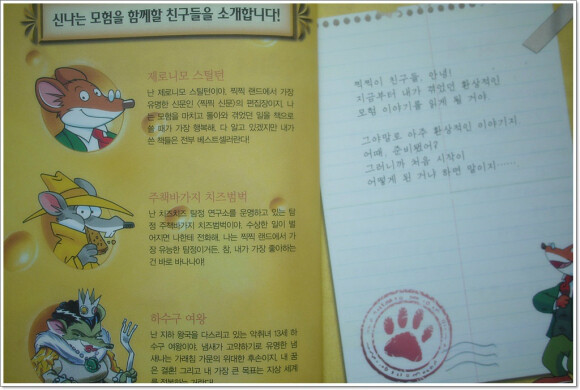 신나는 모험을 함께할 친구들을 소개합니다!
제로니모 스틸턴
난 제로니모 스틸턴이야. 찍찍 랜드에서 가장
유명한 신문인 〈찍찍 신문〉의 편집장이지. 나
는 모험을 마치고 돌아와 겪었던 일을 책으로
쓸 때가 가장 행복해. 다 알고 있겠지만 내가
쓴 책들은 전부 베스트셀러란다!
주책바가지 치즈범벅
난 치즈치즈 탐정 연구소를 운영하고 있는 탐
정 주책바가지 치즈범벅이야. 수상한 일이 벌
어지면 나한테 전화해. 나는 찍찍 랜드에서 가
장 유능한 탐정이거든. 참, 내가 가장 좋아하는
건 바로 바나나야!
하수구 여왕
난 지하 왕국을 다스리고 있는 악취녀 13세 하
수구 여왕이야. 냄새가 고약하기로 유명한 냄
새나는 가래침 가문의 위대한 후손이지. 내 꿈
은 결혼! 그리고 내 가장 큰 목표는 지상 세계
를 정복하는 거란다!
찍찍이 친구들, 안녕!
지금부터 내가 겪었던 환상적인
모험 이야기를 읽게 될 거야.
그야말로 아주 환상적인 이야기지
어때, 준비됐어?
그러니까 처음 시작이
어떻게 된 거냐 하면 말이지……